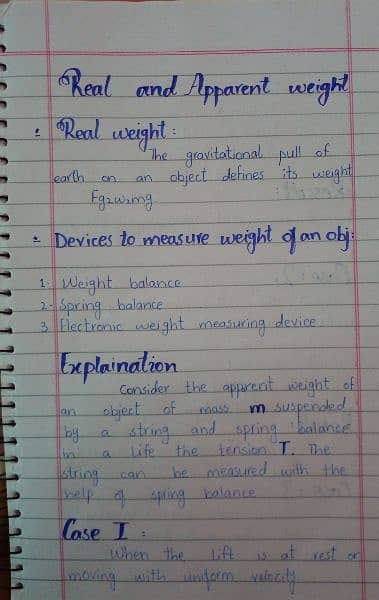 Real and Apparent weight
Real weight:
The gravitational pull of
earth on an object defines its weight
Fg=w=mg
Devices to measure weight of an obj:
1- Weight balance
2- Spring balance
3. Electronic weight measuring device.
Explaination
Consider the apprent weight of
an object of mass m suspended
by a string and spring balance
in a life the tension T. The
string can be measured with the
help of spring balance
Case I :
When the lift is at rest or
moving with uniform velocity